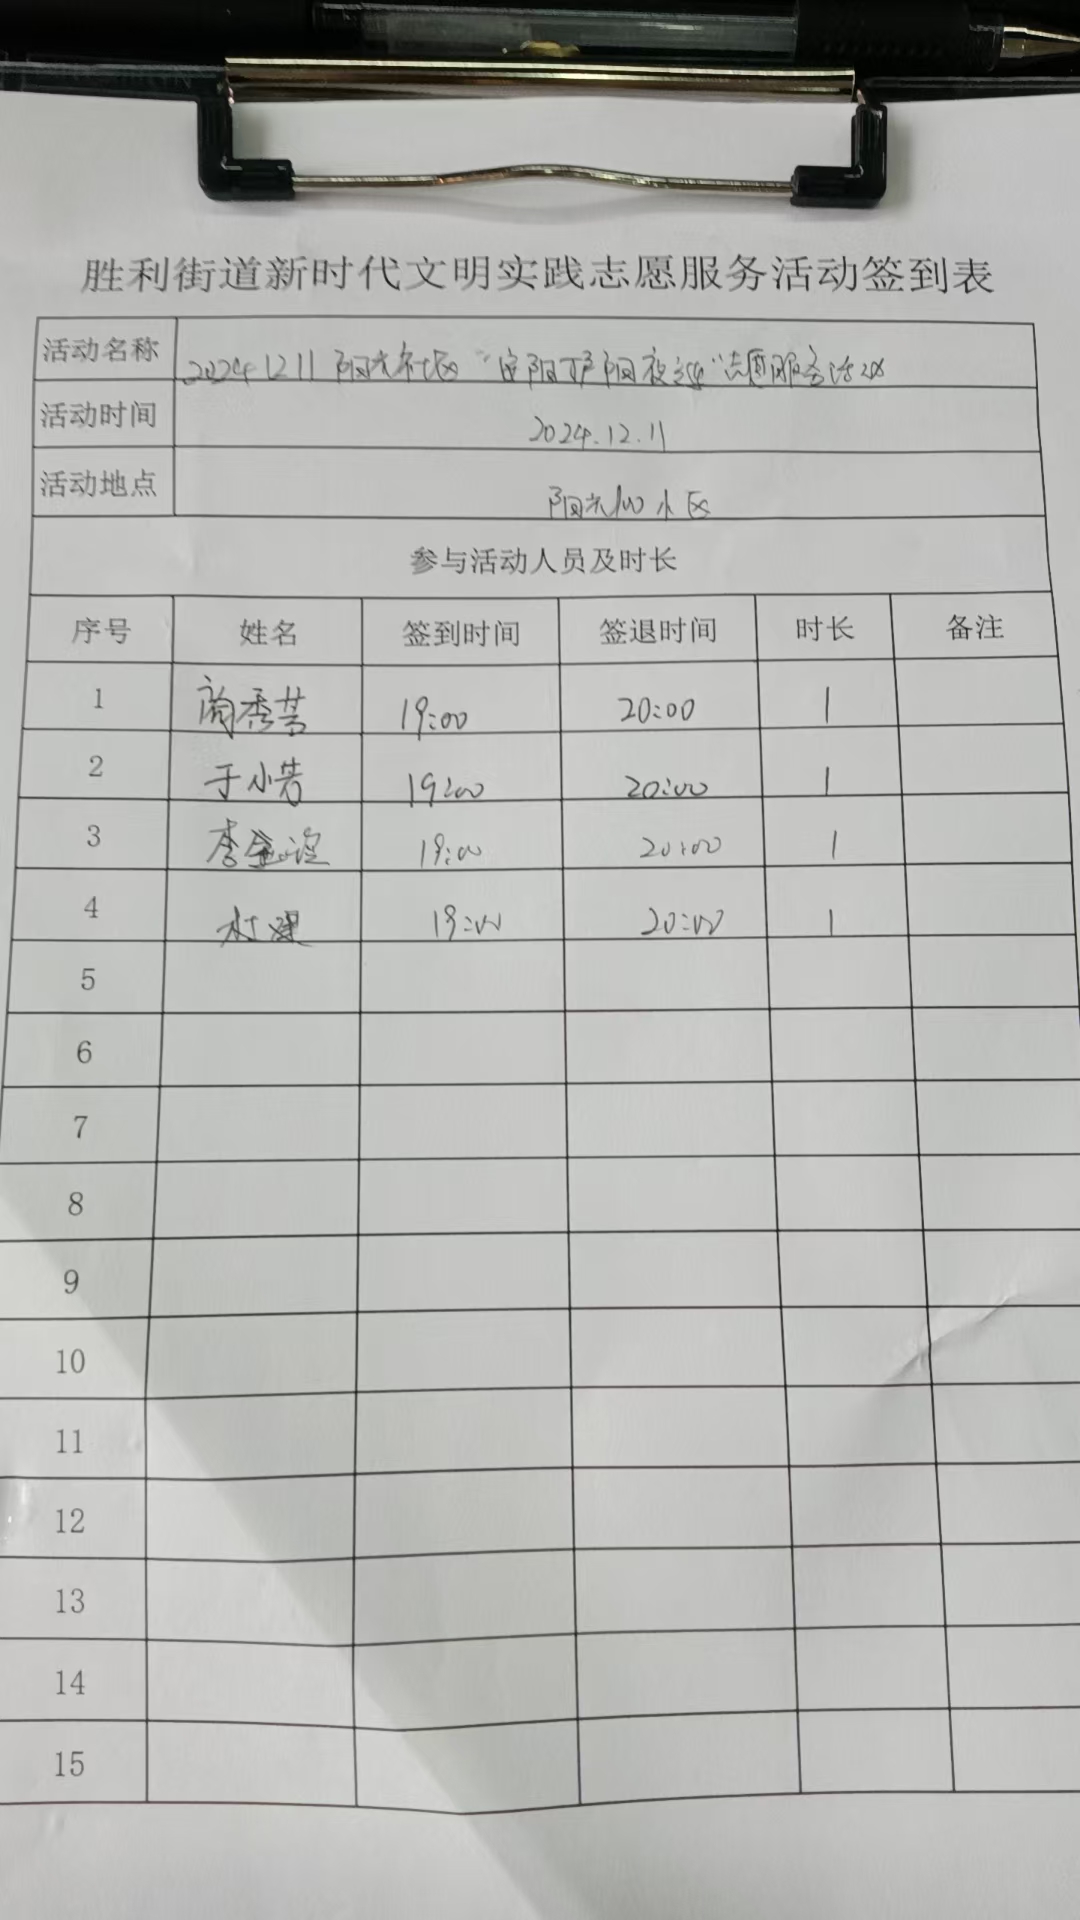 胜利街道新时代文明实践志愿服务活动签到表
活动名称 20241211 阳光社区“阳夜”志愿服务活动
活动时间 2024.12.11
活动地点 阳光100小区
参与活动人员及时长
序号 姓名 签到时间 签退时间 时长 备注
1 秀芳 19:00 20:00 1
2 于小芳 19:00 20:00 1
3 李 19:00 20:00 1
4 19:00 20:00 1
5
6
7
8
9
10
11
12
13
14
15